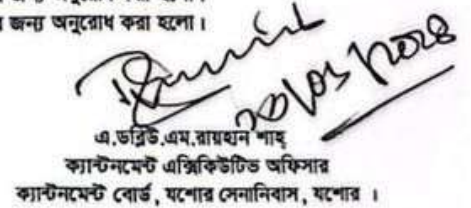 জন্য অনুরোধ করা হলো।
এ.ডব্লিউ.এম.রায়হান শাহ্
ক্যান্টনমেন্ট এক্সিকিউটিভ অফিসার
ক্যান্টনমেন্ট বোর্ড, যশোর সেনানিবাস, যশোর ।